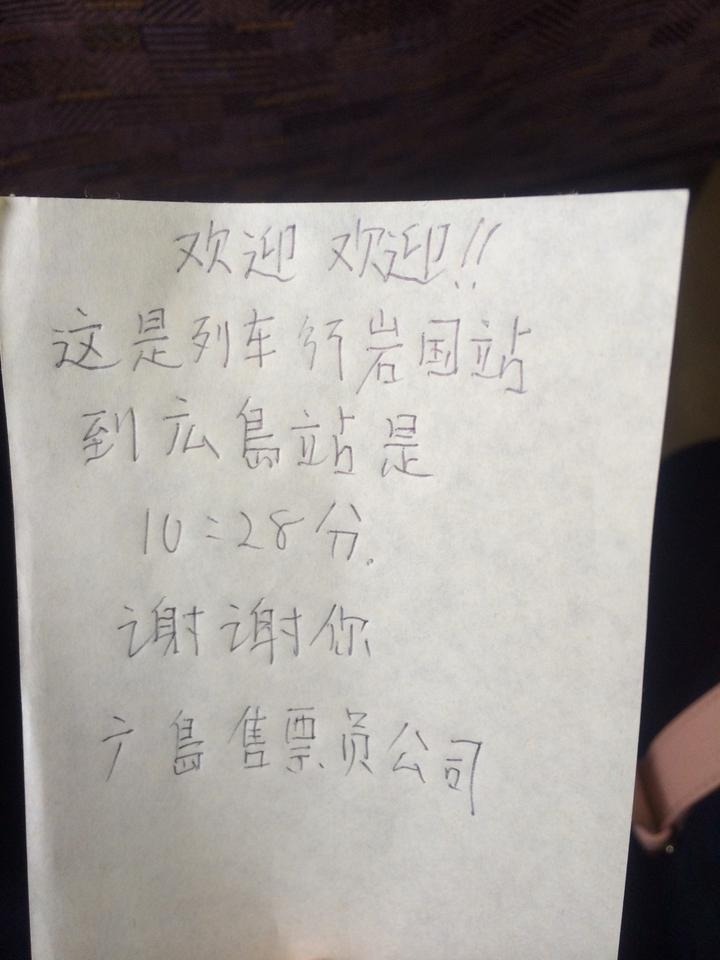 欢迎 欢迎!!
这是列车行岩国站
到広島站是
10:28分.
谢谢你
广島售票员公司